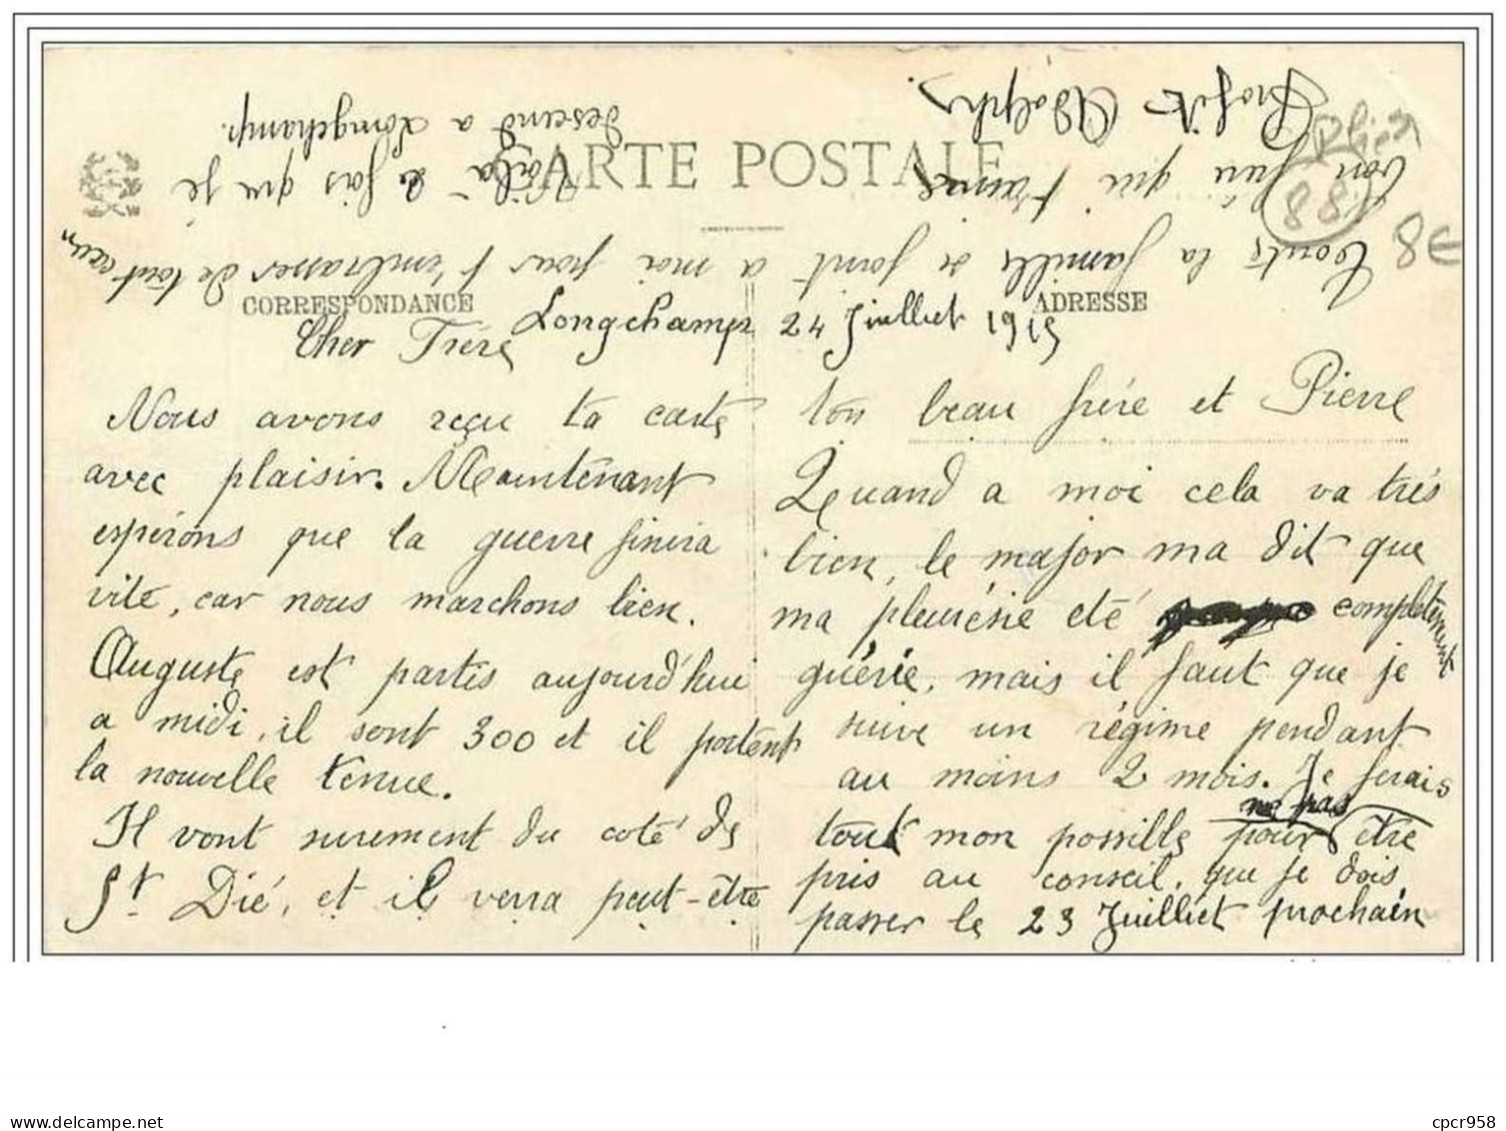 CARTE POSTALE
CORRESPONDANCE
ADRESSE
Longchamp 24 Juilliet 1915
Cher Frère
Nous avons reçu ta carte
avec plaisir. Maintenant
espérons que la guerre finira
vite, car nous marchons bien.
Auguste est partis aujourd'hui
a midi, il sont 300 et il portent
la nouvelle tenue.
Il vont surement du coté de
St. Dié, et il verra peut-être
ton beau frère et Pierre
Quand a moi cela va très
bien, le major ma dit que
ma pleurésie eté completement
guérie, mais il faut que je
suive un régime pendant
au moins 2 mois. Je ferais
tout mon possible pour ne pas être
pris au conseil, que je dois
passer le 23 Juilliet prochain
Voilà le fois que je
descend a Longchamp.
Toute la famille se joint a moi pour t'embrasser de tout cœur
ton frère qui t'aime
Adolphe
Pliée
88
8E
cpcr958